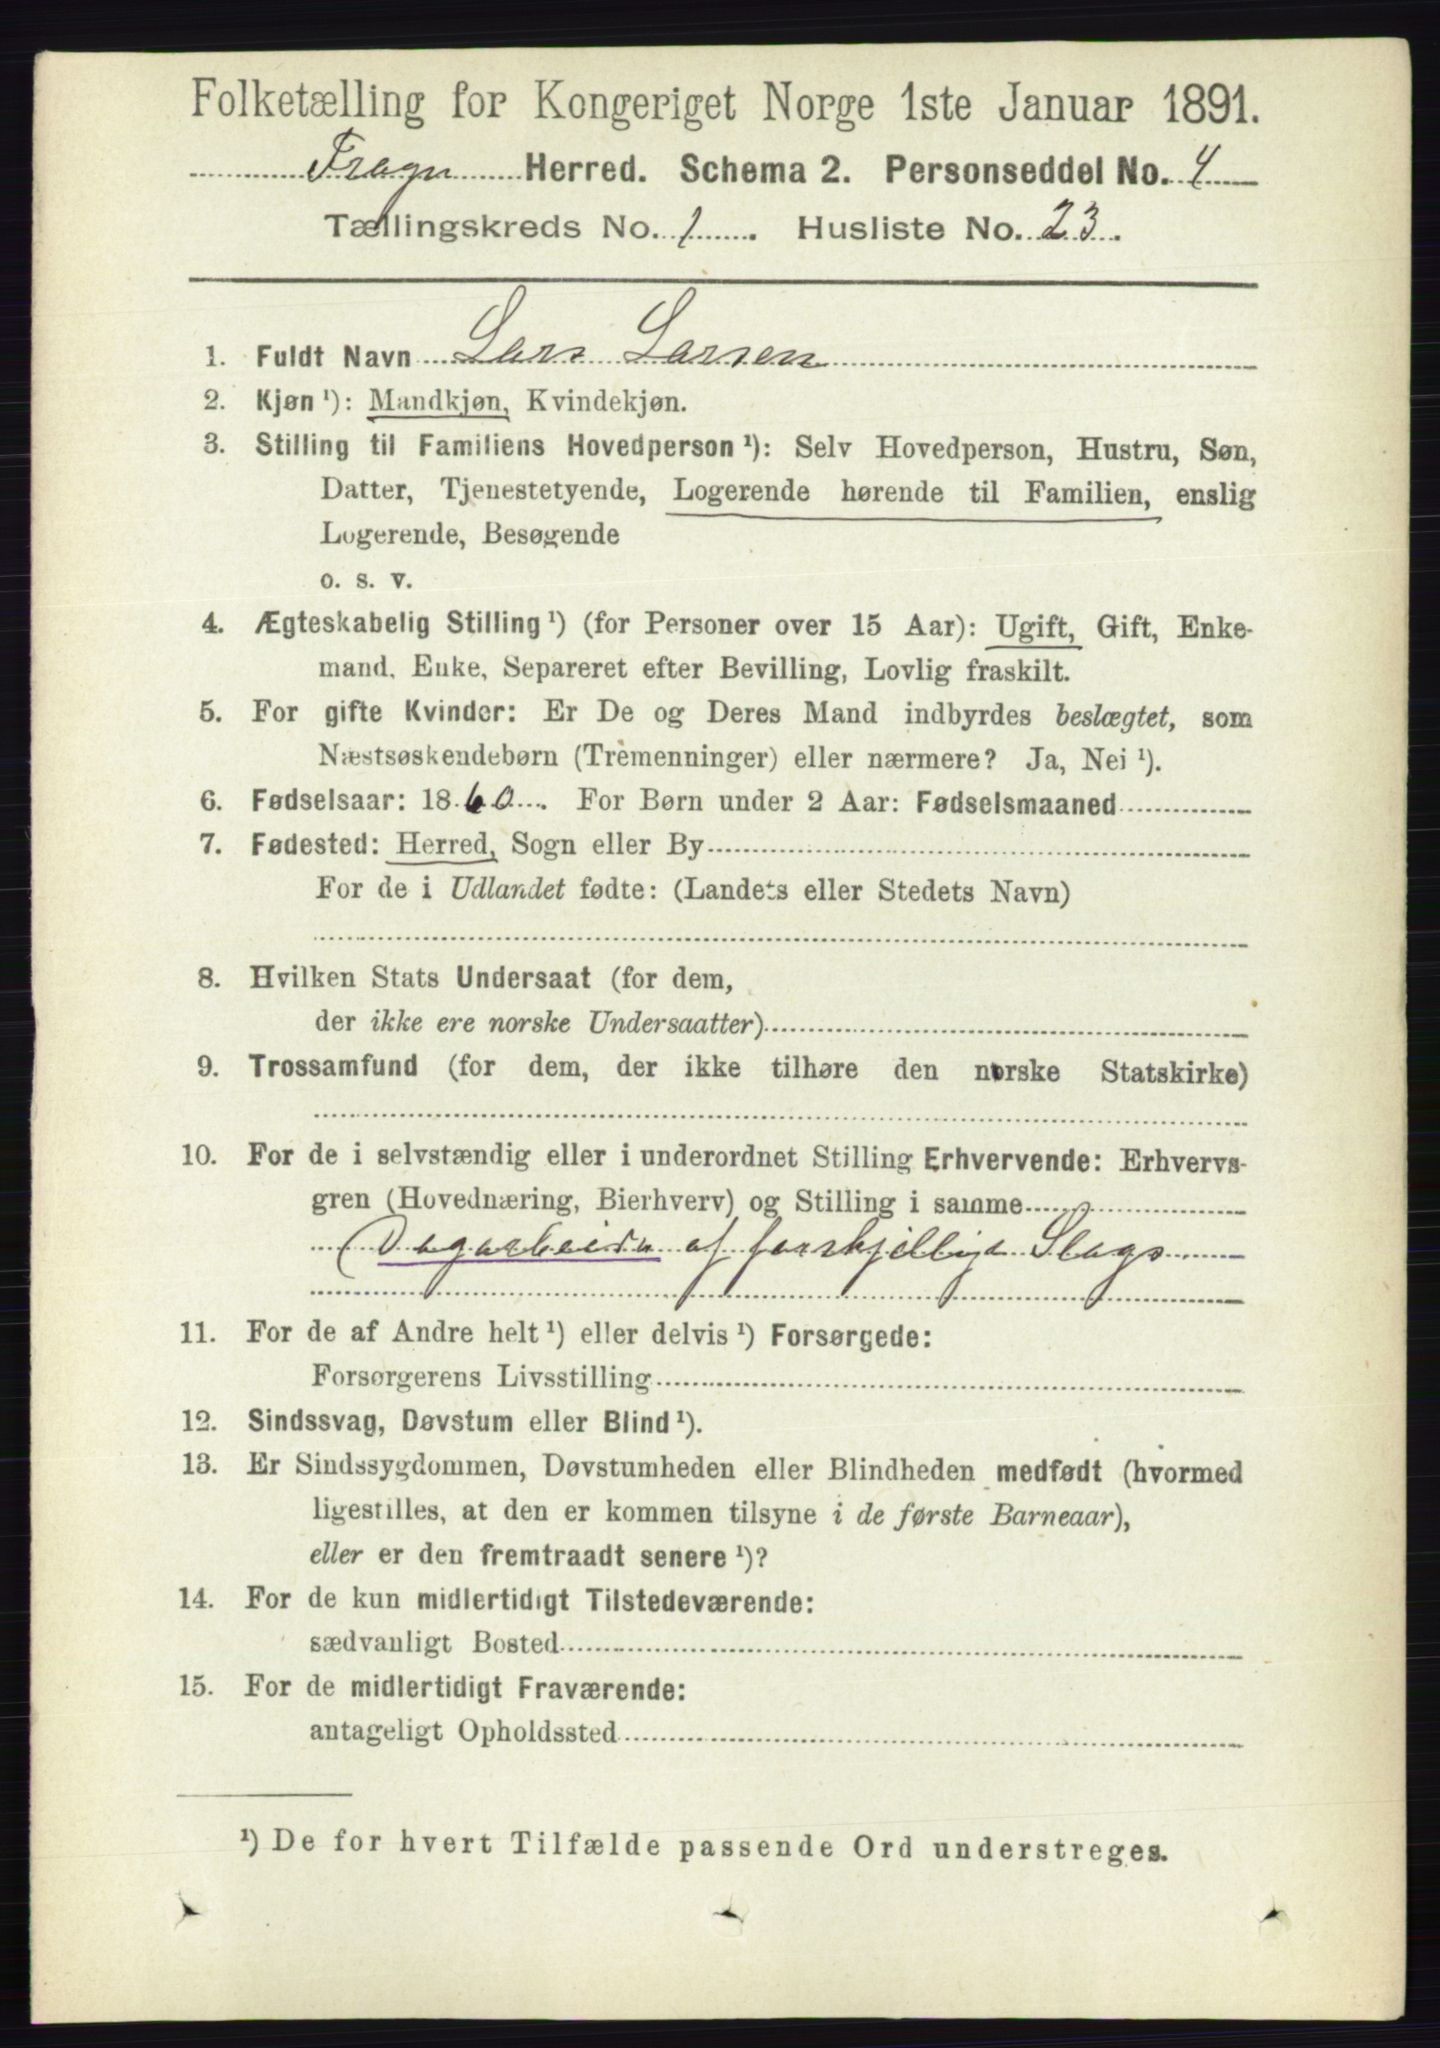 Folketælling for Kongeriget Norge 1ste Januar 1891.
Frogn Herred. Schema 2. Personseddel No. 4
Tællingskreds No. 1. Husliste No. 23.
1. Fuldt Navn Lars Larsen
2. Kjøn ¹): Mandkjøn, Kvindekjøn.
3. Stilling til Familiens Hovedperson ¹): Selv Hovedperson, Hustru, Søn,
Datter, Tjenestetyende, Logerende hørende til Familien, enslig
Logerende, Besøgende
o. s. v.
4. Ægteskabelig Stilling ¹) (for Personer over 15 Aar): Ugift, Gift, Enke-
mand, Enke, Separeret efter Bevilling, Lovlig fraskilt.
5. For gifte Kvinder: Er De og Deres Mand indbyrdes beslægtet, som
Næstsøskendebørn (Tremenninger) eller nærmere? Ja, Nei ¹).
6. Fødselsaar: 1860. For Børn under 2 Aar: Fødselsmaaned
7. Fødested: Herred, Sogn eller By
For de i Udlandet fødte: (Landets eller Stedets Navn)
8. Hvilken Stats Undersaat (for dem,
der ikke ere norske Undersaatter)
9. Trossamfund (for dem, der ikke tilhøre den norske Statskirke)
10. For de i selvstændig eller i underordnet Stilling Erhvervende: Erhvervs-
gren (Hovednæring, Bierhverv) og Stilling i samme
Dagarbeider af forskjellige Slags
11. For de af Andre helt ¹) eller delvis ¹) Forsørgede:
Forsørgerens Livsstilling
12. Sindssvag, Døvstum eller Blind ¹).
13. Er Sindssygdommen, Døvstumheden eller Blindheden medfødt (hvormed
ligestilles, at den er kommen tilsyne i de første Barneaar),
eller er den fremtraadt senere ¹)?
14. For de kun midlertidigt Tilstedeværende:
sædvanligt Bosted
15. For de midlertidigt Fraværende:
antageligt Opholdssted
¹) De for hvert Tilfælde passende Ord understreges.